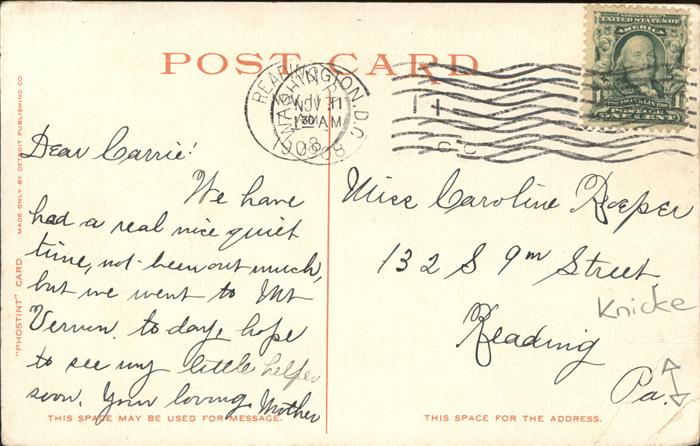 POST CARD
SERIES 1902
UNITED STATES OF
AMERICA
FRANKLIN
ONE CENT
WASHINGTON, D.C.
READING
NOV
30
AM
1908
Dear Carrie!
We have
had a real nice quiet
time, not been out much,
but we went to Mt
Vernon to day, hope
to see my little helper
soon. Your loving Mother
Miss Caroline Roeper
132 S 9th Street
Knicke
Reading
Pa.
THIS SPACE MAY BE USED FOR MESSAGE.
THIS SPACE FOR THE ADDRESS.
"PHOSTINT" CARD
MADE ONLY BY DETROIT PUBLISHING CO.